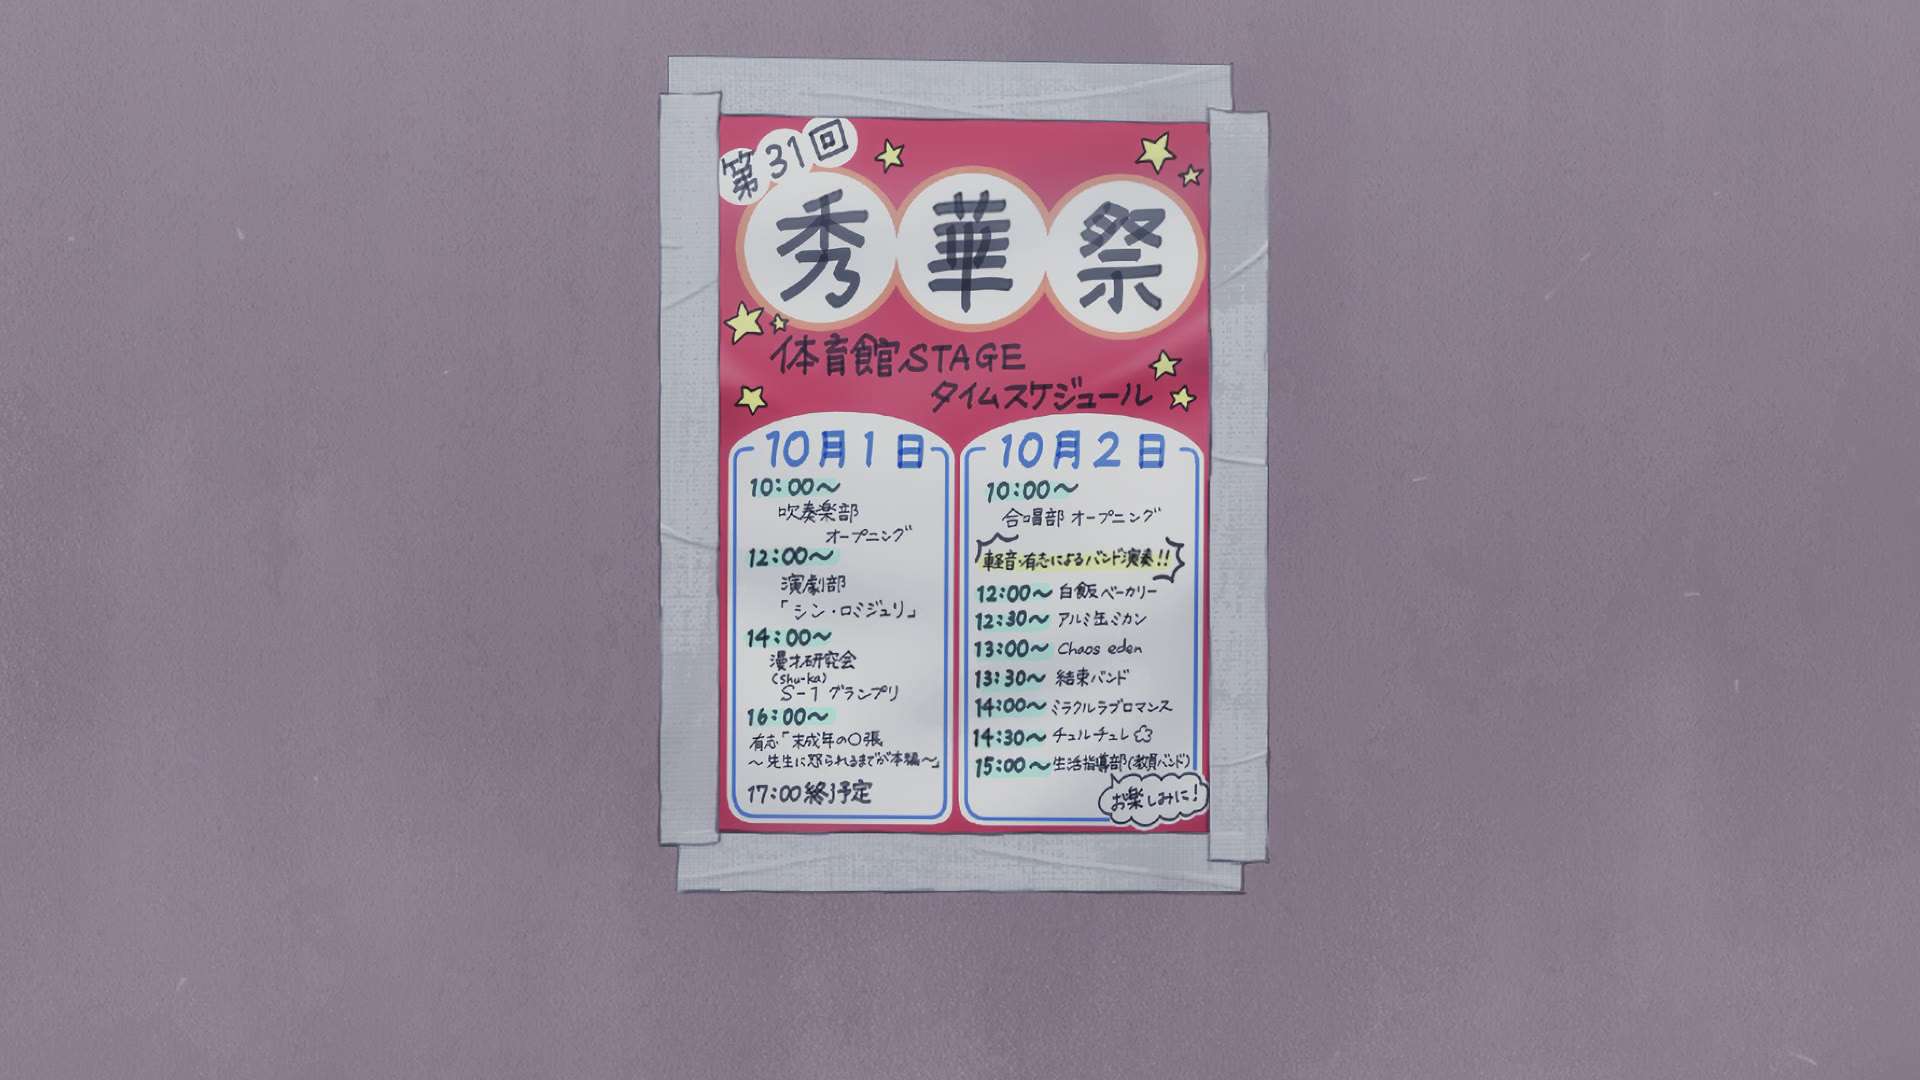 第31回
秀華祭
体育館STAGE
タイムスケジュール
10月1日
10:00～
吹奏楽部
オープニング
12:00～
演劇部
「シン・ロミジュリ」
14:00～
漫才研究会
(shu-ka)
S-1 グランプリ
16:00～
有志「未成年の〇張
～先生に怒られるまでが本編～」
17:00終了予定
10月2日
10:00～
合唱部 オープニング
軽音・有志によるバンド演奏!!
12:00～ 白飯ベーカリー
12:30～ アルミ缶ミカン
13:00～ Chaos eden
13:30～ 結束バンド
14:00～ ミラクルラブロマンス
14:30～ チュルチュレ
15:00～ 生活指導部(教員バンド)
お楽しみに!